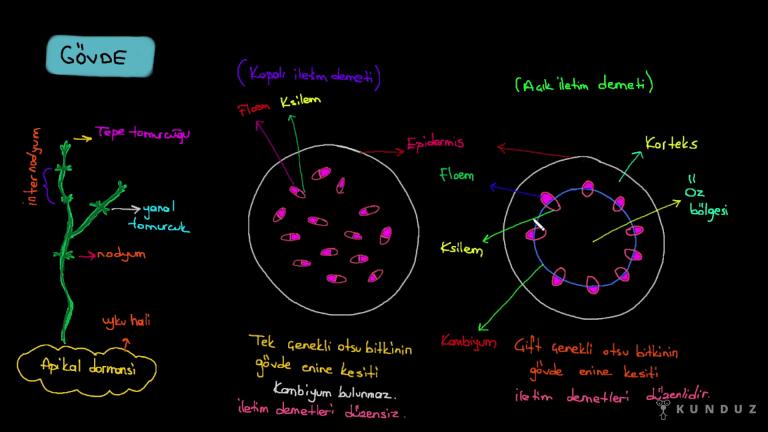 GÖVDE
(Kapalı iletim demeti)
(Açık iletim demeti)
Floem
Ksilem
Tepe tomurcuğu
internodyum
yanal
tomurcuk
nodyum
uyku hali
Apikal dormansi
Epidermis
Korteks
Floem
Öz
bölgesi
Ksilem
Kambiyum
Tek çenekli otsu bitkinin
gövde enine kesiti
Kambiyum bulunmaz.
iletim demetleri düzensiz.
Çift çenekli otsu bitkinin
gövde enine kesiti
iletim demetleri düzenlidir.
KUNDUZ